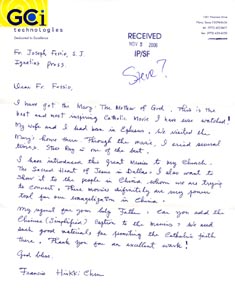 GCi
technologies
Dedicated to Excellence
RECEIVED
NOV 8 2006
IP/SF
Fr. Joseph Fessio, S.J
Ignatius Press.
Dear Fr. Fessio,
I have got the Mary: The Mother of God. This is the
best and most inspiring Catholic Movie I have ever watched!
My wife and I had been in Ephesus. We visited the
Mary's house there. Through the movie, I cried several
times. Your Rey is one of the best.
I have introduced this Great Movie to my Church.
The Sacred Heart of Jesus in Dallas. I also want to
show it to the people in China whom we are trying
to convert. These movies definitely are very power
tool for our evangelization in China.
My request for your holy Father: Can you add the
Chinese (Simplified) Caption to the movies? We need
such good materials for promoting the Catholic faith
there. Thank you for an excellent work!
God bless.
Francis Chen